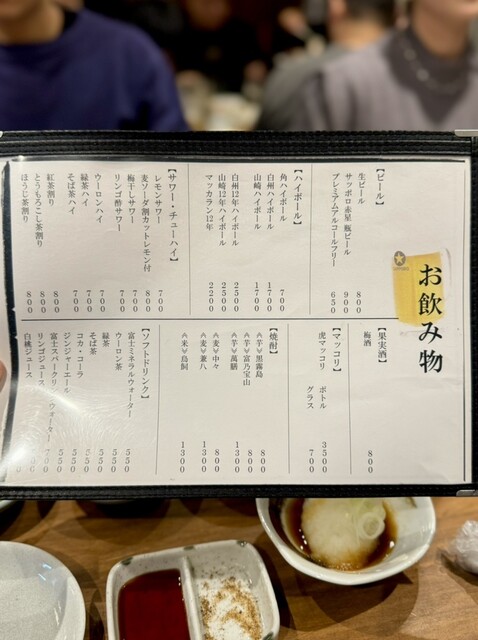 お飲み物
SAPPORO
【ビール】
生ビール 800
サッポロ赤星 瓶ビール 900
プレミアムアルコールフリー 650
【ハイボール】
角ハイボール 700
白州ハイボール 1700
山崎ハイボール 1700
白州12年ハイボール 2500
山崎12年ハイボール 2500
マッカラン12年 2200
【サワー・チューハイ】
レモンサワー 700
麦ソーダ割カットレモン付 800
梅干しサワー 700
リンゴ酢サワー 700
ウーロンハイ 700
緑茶ハイ 700
そば茶ハイ 700
紅茶割り 800
とうもろこし茶割り 800
ほうじ茶割り 800
【果実酒】
梅酒 800
【マッコリ】
虎マッコリ ボトル 3500
グラス 700
【焼酎】
≪芋≫黒霧島 800
≪芋≫富乃宝山 800
≪芋≫萬膳 1300
≪麦≫中々 800
≪麦≫兼八 1300
≪米≫鳥飼 1300
【ソフトドリンク】
富士ミネラルウォーター 550
ウーロン茶 550
緑茶 550
そば茶 550
コカ・コーラ 550
ジンジャーエール 550
富士スパークリングウォーター
リンゴジュース 700
白桃ジュース 800